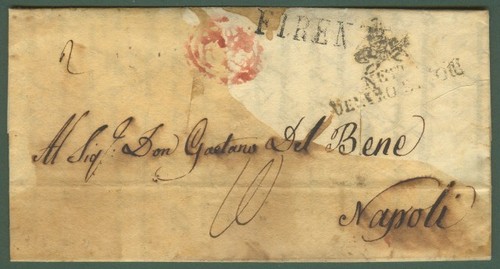 FIREN
Al Sig.r Don Gaetano Del Bene
Napoli